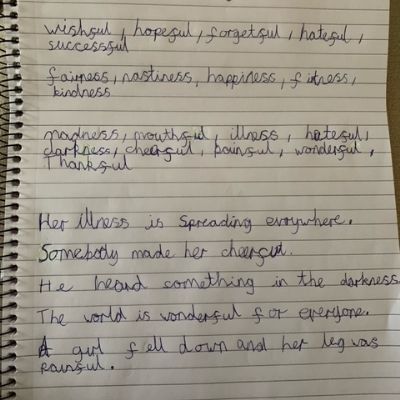 wishful, hopeful, forgetful, hateful,
successful
fairness, nastiness, happiness, fitness,
kindness
madness, mouthful, illness, hateful,
darkness, cheerful, painful, wonderful,
Thankful
Her illness is spreading everywhere.
Somebody made her cheerful.
He heard something in the darkness
The world is wonderful for everyone.
A girl fell down and her leg was
painful.